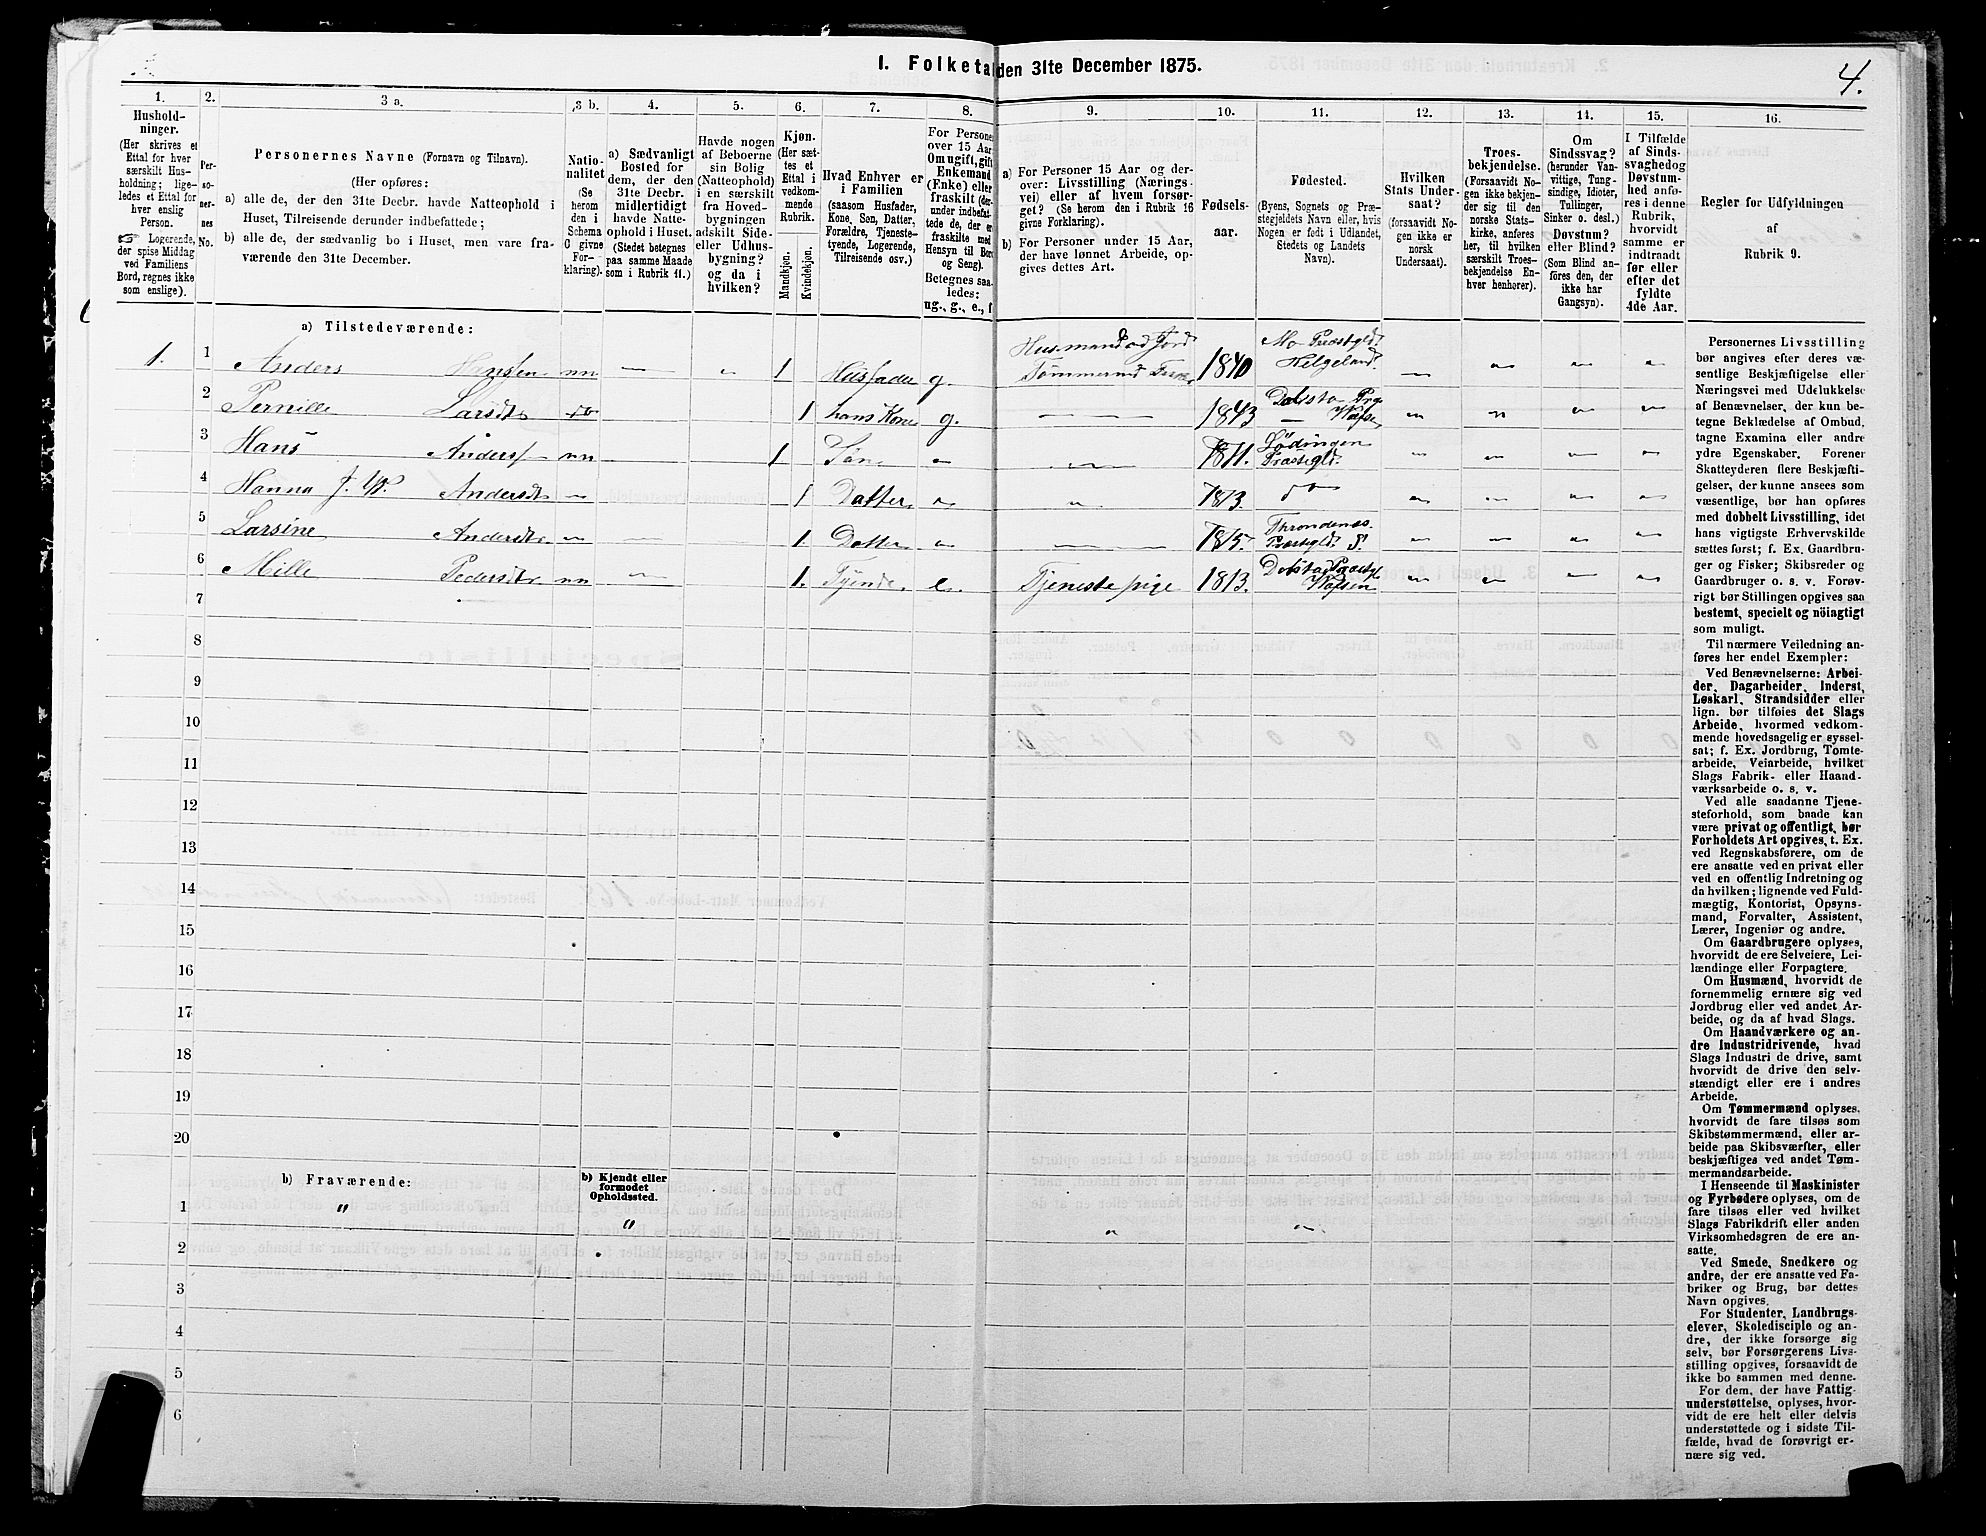 1. Folketa den 31te December 1875.
4.
1.
2.
3 a.
3 b.
4.
5.
6.
7.
8.
9.
10.
11.
12.
13.
14.
15.
16.
Hushold-
ninger.
(Her skrives et
Ettal for hver
særskilt Hus-
holdning; lige-
ledes et Ettal for
hver enslig
Person.
Logerende,
der spise Middag
ved Familiens
Bord, regnes ikke
som enslige).
Per-
so-
ner-
nes
No.
Personernes Navne (Fornavn og Tilnavn).
(Her opføres:
a) alle de, der den 31te Decbr. havde Natteophold i
Huset, Tilreisende derunder indbefattede;
b) alle de, der sædvanlig bo i Huset, men vare fra-
værende den 31te December.
Natio-
nalitet
(Se
herom
den i
Schema
C givne
For-
klaring).
a) Sædvanligt
Bosted for
dem, der den
31te Decbr.
midlertidigt
havde Natte-
ophold i Huset.
(Stedet betegnes
paa samme Maade
som i Rubrik 11.)
Havde nogen
af Beboerne
sin Bolig
(Natteophold)
i en særskilt
fra Hoved-
bygningen
adskilt Side-
eller Udhus-
bygning?
og da i
hvilken?
Kjøn.
(Her sæt-
tes et
Ettal i
vedkom-
mende
Rubrik.
Mandkjøn.
Kvindekjøn.
Hvad Enhver er
i Familien
(saasom Husfader,
Kone, Søn, Datter,
Forældre, Tjeneste-
tyende, Logerende,
Tilreisende osv.)
For Persone
over 15 Aar
Om ugift, gift
Enkemand
(Enke) eller
fraskilt (der-
under indbefat-
tede de, der er
fraskilte med
Hensyn til Bor
og Seng).
Betegnes saa-
ledes:
ug., g., e., f
a) For Personer 15 Aar og der-
over: Livsstilling (Nærings-
vei) eller af hvem forsør-
get? (Se herom den i Rubrik 16
givne Forklaring).
b) For Personer under 15 Aar,
der have lønnet Arbeide, op-
gives dettes Art.
Fødsels-
aar.
Fødested.
(Byens, Sognets og Præ-
stegjeldets Navn eller, hvis
Nogen er født i Udlandet,
Stedets og Landets
Navn).
Hvilken
Stats Under-
saat?
(forsaavidt No-
gen ikke er
norsk
Undersaat).
Troes-
bekjendelse.
(Forsaavidt No-
gen ikke bekjen-
der sig til den
norske Stats-
kirke, anføres
her, til hvilken
særskilt Troes-
bekjendelse En-
hver henhører).
Om
Sindssvag?
(herunder Van-
vittige, Tung-
sindige, Idioter,
Tullinger,
Sinker o. desl.)
Døvstum?
eller Blind?
(Som Blind an-
føres den, der
ikke har
Gangsyn).
I Tilfælde
af Sinds-
svaghed og
Døvstum-
hed anfø-
res i denne
Rubrik,
hvorvidt
samme er
indtraadt
før eller
efter det
fyldte
4de Aar.
Regler for Udfyldningen
af
Rubrik 9.
a) Tilstedeværende:
1. 1 Anders Hansen nn — „ 1 Husfader g. Husmand ad Jord Tømmermd 1840 Mo Præstgld. Helgeland.
2 Pernille Larsdtr do 1 hans Kone g. — 1843
3 Hans Anders. nn 1 Søn „ — 1871. Lødingen Præstegld.
4 Hanna J. W. Andersdtr „ 1 Datter „ „ 1873. do
5 Larsine Andersdtr „ 1. Datter „ — 1875. Throndenæs. Præstgld. S.
6 Mille Pedersdtr nn — 1. Tyende. e. Tjenestepige 1813.
7
8
9
10
11
12
13
14
15
16
17
18
19
20
b) Fraværende:
b) Kjendt eller
formodet
Opholdssted.
1 „ „ „ „
2
3
4
5
6
Personernes Livsstilling
bør angives efter deres væ-
sentlige Beskjæftigelse eller
Næringsvei med Udelukkelse
af Benævnelser, der kun be-
tegne Beklædelse af Ombud,
tagne Examina eller andre
ydre Egenskaber. Forener
Skatteyderen flere Beskjæfti-
gelser, der kunne ansees som
væsentlige, bør han opføres
med dobbelt Livsstilling, idet
hans vigtigste Erhvervskilde
sættes først; f. Ex. Gaardbru-
ger og Fisker; Skibsreder og
Gaardbruger o. s. v. Forøv-
rigt bør Stillingen opgives saa
bestemt, specielt og nöiagtigt
som muligt.
Til nærmere Veiledning an-
føres her endel Exempler:
Ved Benævnelserne: Arbei-
der, Dagarbeider, Inderst,
Løskarl, Strandsidder eller
lign. bør tilføies det Slags
Arbeide, hvormed vedkom-
mende hovedsagelig er syssel-
sat; f. Ex. Jordbrug, Tømte-
arbeide, Veiarbeide, hvilket
Slags Fabrik- eller Haand-
værksarbeide o. s. v.
Ved alle saadanne Tjene-
steforhold, som baade kan
være privat og offentligt, bør
Forholdets Art opgives, t. Ex.
ved Regnskabsførere, om de
ere ansatte ved en privat eller
ved en offentlig Indretning og
da hvilken; lignende ved Fuld-
mægtig, Kontorist, Opsyns-
mand, Forvalter, Assistent,
Lærer, Ingeniør og andre.
Om Gaardbrugere oplyses,
hvorvidt de ere Selveiere, Lei-
lændinge eller Forpagtere.
Om Husmænd, hvorvidt de
fornemmelig ernære sig ved
Jordbrug eller ved andet Ar-
beide, og da af hvad Slags.
Om Haandværkere og an-
dre Industridrivende, hvad
Slags Industri de drive, samt
hvorvidt de drive den selv-
stændigt eller ere i andres
Arbeide.
Om Tømmermænd oplyses,
hvorvidt de fare tilsøs som
Skibstømmermænd, eller ar-
beide paa Skibsværfter, eller
beskjæftiges ved andet Tøm-
mermandsarbeide.
I Henseende til Maskinister
og Fyrbødere oplyses, om de
fare tilsøs eller ved hvilket
Slags Fabrikdrift eller anden
Virksomhedsgren de ere an-
satte.
Ved Smede, Snedkere og
andre, der ere ansatte ved Fa-
briker og Brug, bør dettes
Navn opgives.
For Studenter, Landbrugs-
elever, Skoledisciple og an-
dre, der ikke forsørge sig
selv, bør Forsørgerens Livs-
stilling opgives, forsaavidt de
ikke bo sammen med denne.
For dem, der have Fattig-
understøttelse, oplyses, hvor-
vidt de ere helt eller delvis
understøttede og i sidste Til-
fælde, hvad de forøvrigt er-
nære sig ved.